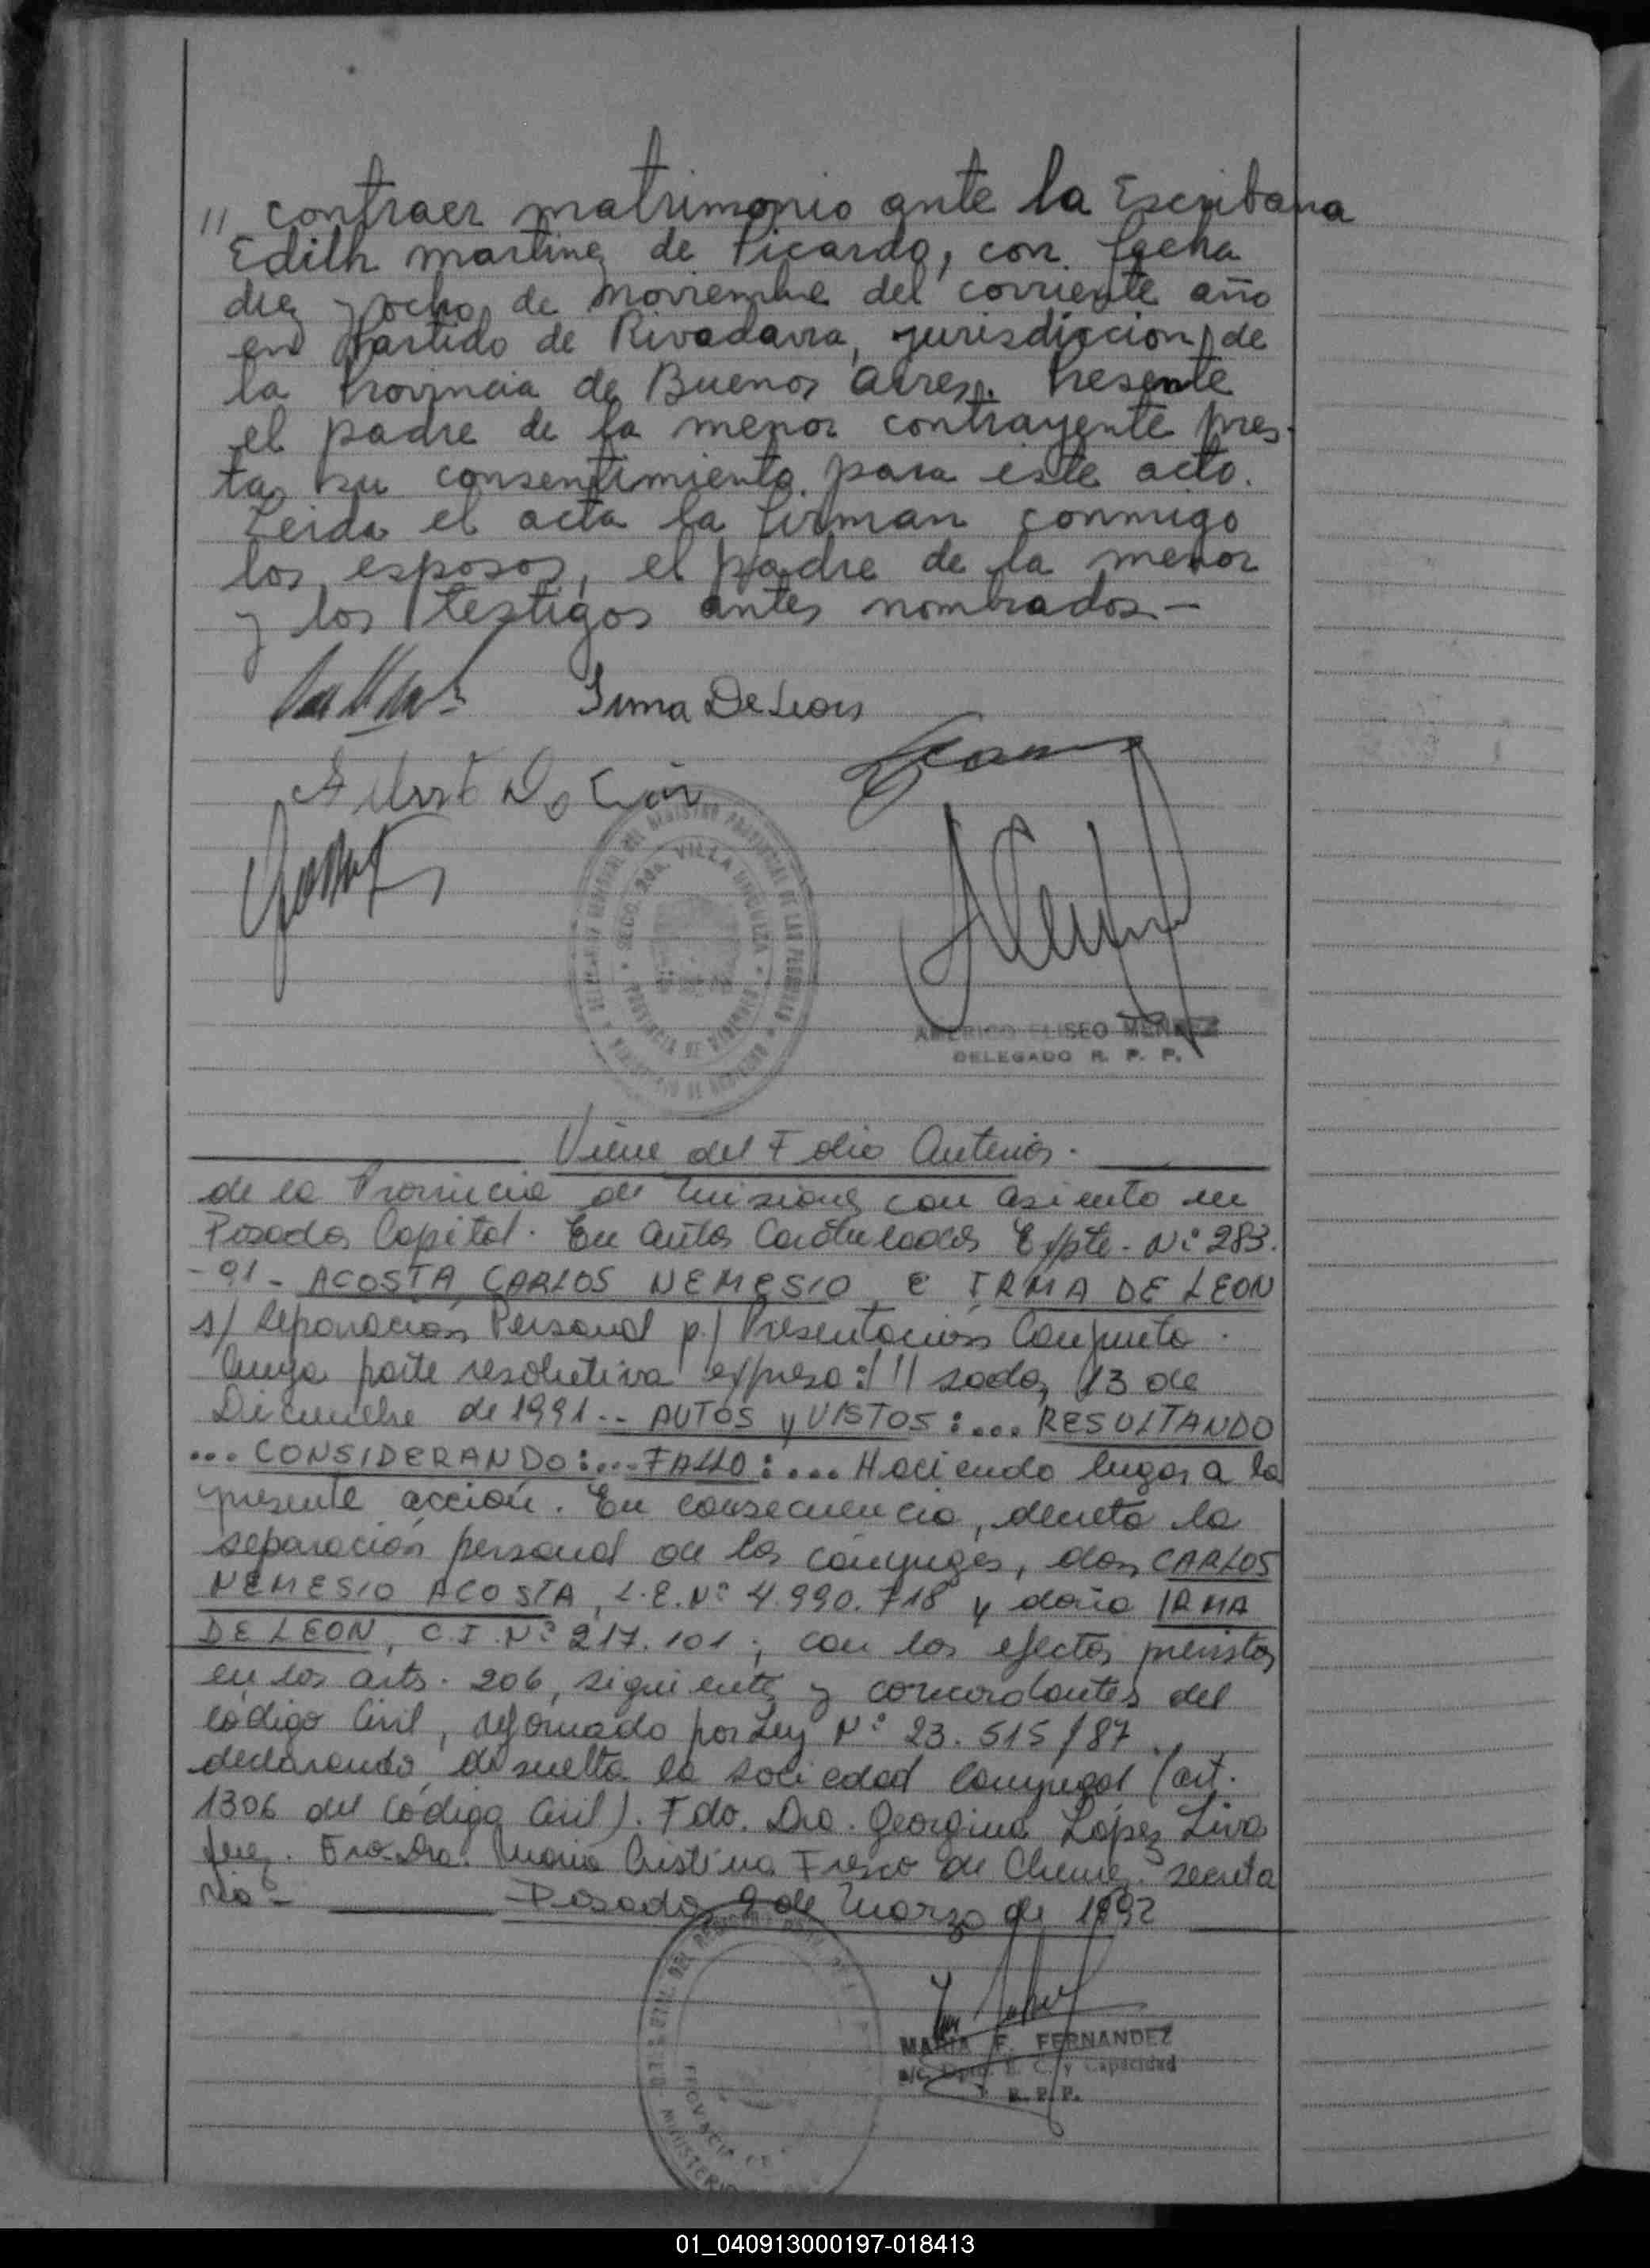 // contraer matrimonio ante la Escribana
Edith Martinez de Picardo, con fecha
diez y ocho de noviembre del corriente año
en Partido de Rivadavia, jurisdiccion de
la Provincia de Buenos Aires. Presente
el padre de la menor contrayente pres-
ta su consentimiento para este acto.
Leida el acta la firman conmigo
los esposos, el padre de la menor
y los testigos antes nombrados—
Irma De Leon
Alberto De León
SECC. 2da. VILLA URQUIZA
PROVINCIA DE MISIONES
AMERICO ELISEO MENDEZ
DELEGADO R. P. P.
Viene del Folio Anterior.
de la Provincia de Misiones con asiento en
Posadas Capital. En autos Caratulados Expte. Nº 283.
-91- ACOSTA CARLOS NEMESIO e IRMA DE LEON
s/ Separación Personal p/ Presentación Conjunta.
Cuya parte resolutiva expresa: // sadas, 13 de
Diciembre de 1991.. AUTOS y VISTOS:... RESULTANDO
... CONSIDERANDO:... FALLO:... Haciendo lugar a la
presente acción. En consecuencia, decreto la
separación personal de los cónyuges, don CARLOS
NEMESIO ACOSTA, L.E. Nº 4.990.718 y doña IRMA
DE LEON, C.I. Nº 217.101, con los efectos previstos
en los arts. 206, siguientes y concordantes del
código Civil, reformado por Ley Nº 23.515/87,
declarando disuelta la sociedad conyugal (art.
1306 del Código Civil). Fdo. Dra. Georgina López Liva
Juez. Fdo. Dra. Maria Cristina Fresco de Chemez. Secreta
ria - Posadas 9 de Marzo de 1992
MARIA F. FERNANDEZ
a/c. Dpto. E. C. y Capacidad
R. P. P.
01_040913000197-018413